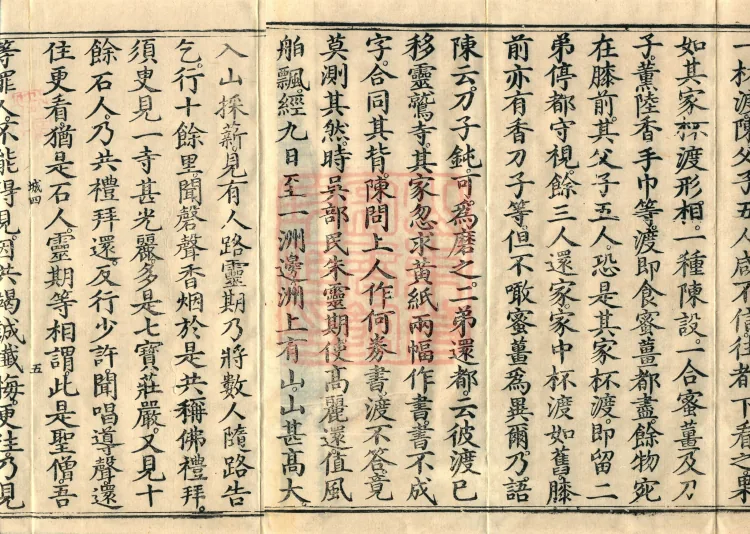 一杯渡陳父子五人咸不信往都下看之果
如其家杯渡形相一種陳設一合蜜薑及刀
子薰陸香手巾等渡即食蜜薑都盡餘物宛
在膝前其父子五人恐是其家杯渡即留二
弟停都守視餘三人還家家中杯渡如舊膝
前亦有香刀子等但不噉蜜薑爲異爾乃語
陳云刀子鈍可爲磨之二弟還都云彼渡已
移靈鷲寺其家忽求黃紙兩幅作書書不成
字合同其背陳問上人作何券書渡不答竟
莫測其然時吳部民朱靈期使高麗還值風
舶飄經九日至一洲邊洲上有山山甚高大
入山採薪見有人路靈期乃將數人隨路告
乞行十餘里聞磬聲香烟於是共稱佛禮拜
須臾見一寺甚光麗多是七寶莊嚴又見十
餘石人乃共禮拜還反行少許聞唱導聲還
住更看猶是石人靈期等相謂此是聖僧吾
城四 五
等罪人不能得見因共竭誠懺悔更往乃見